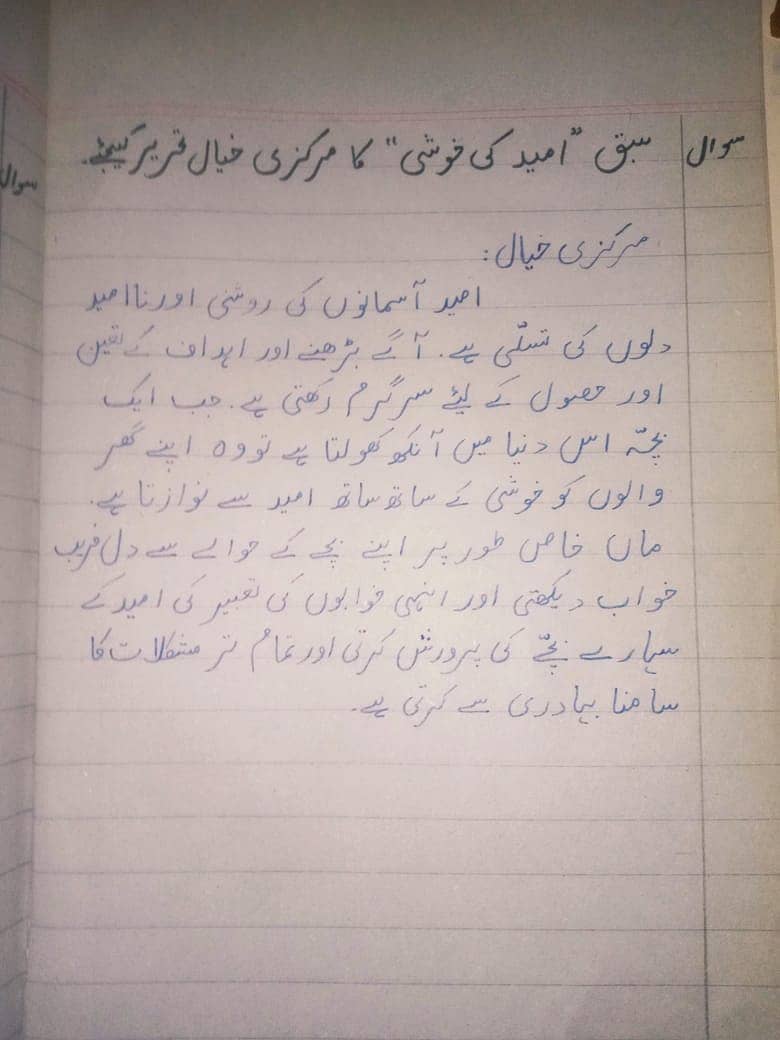 سوال سبق "امید کی خوشی" کا مرکزی خیال تحریر کیجئے۔
سوال
مرکزی خیال:
امید آسمانوں کی روشنی اور ناامید
دلوں کی تسلّی ہے۔ آگے بڑھنے اور اہداف کے تعین
اور حصول کے لیئے سرگرم رکھتی ہے۔ جب ایک
بچّہ اس دنیا میں آنکھ کھولتا ہے تو وہ اپنے گھر
والوں کو خوشی کے ساتھ ساتھ امید سے نوازتا ہے۔
ماں خاص طور پر اپنے بچے کے حوالے سے دل فریب
خواب دیکھتی اور انہی خوابوں کی تعبیر کی امید کے
سہارے بچّے کی پرورش کرتی اور تمام تر مشکلات کا
سامنا بہادری سے کرتی ہے۔